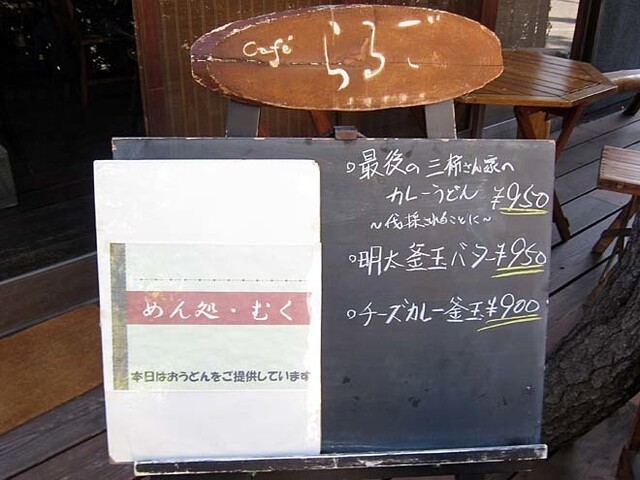 Café らるご
めん処・むく
本日はおうどんをご提供しています
最後の三柿さん家の
カレーうどん ¥950
～伐採されることに～
明太釜玉バター ¥950
チーズカレー釜玉 ¥900